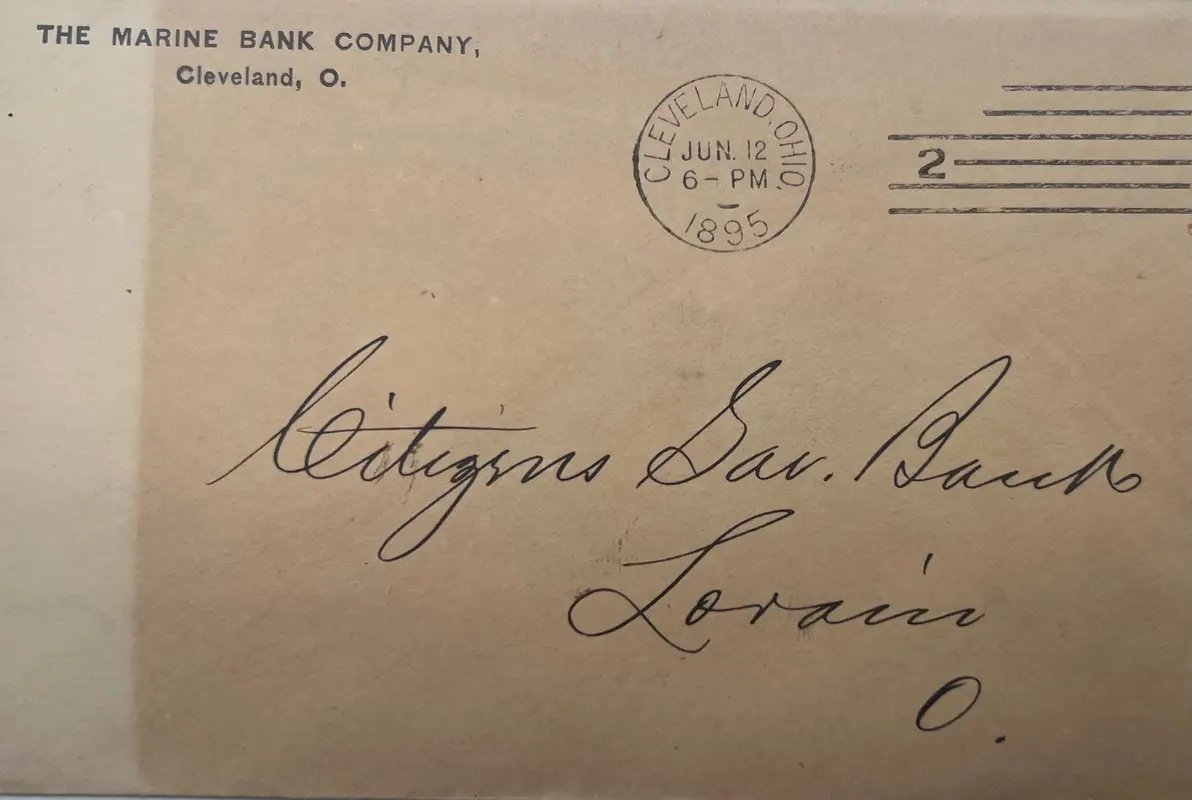 THE MARINE BANK COMPANY,
Cleveland, O.
CLEVELAND, OHIO.
JUN. 12
6 - PM
1895
2
Citizens Sav. Bank
Lorain
O.